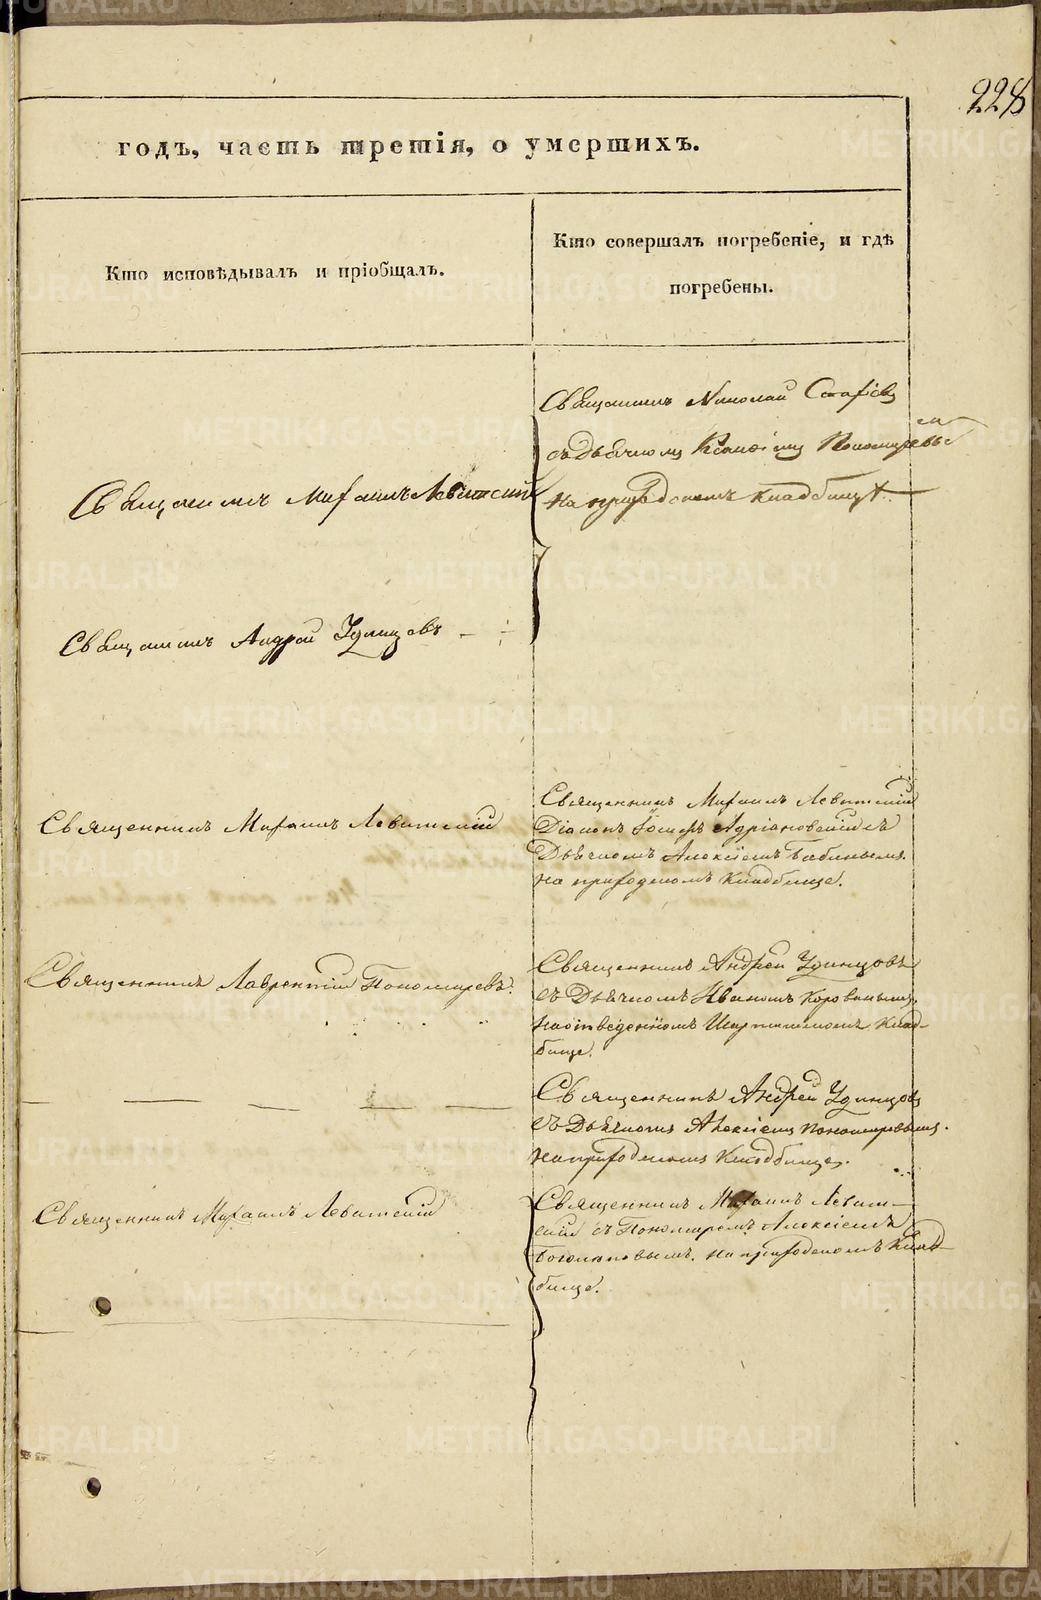 228
годъ, часть третія, о умершихъ.
Кто исповѣдывалъ и пріобщалъ.
Кто совершалъ погребеніе, и гдѣ
погребены.
Священникъ Николай
съ Дьячкомъ Пономаревымъ
на приходскомъ кладбищѣ.
Священникъ Михаилъ Левитскій
Священникъ Андрей Удинцовъ
Священникъ Михаилъ Левитскій
Священникъ Михаилъ Левитскій
Діаконъ Адріановскій съ
Дьячкомъ Алексіемъ Бабинымъ.
на приходскомъ Кладбище.
Священникъ Лаврентій Пономаревъ.
Священникъ Андрей Удинцовъ
съ Дьячкомъ Иваномъ Коровинымъ.
на отведенномъ Шарташскомъ Клад-
бище.
Священникъ Андрей Удинцовъ
съ Дьячкомъ Алексіемъ Пономаревымъ.
на приходскомъ Кладбище.
Священникъ Михаилъ Левитскій
Священникъ Михаилъ Левит-
скій съ Пономаремъ Алексіемъ
на приходскомъ Клад-
бище.
METRIKI.GASO-URAL.RU